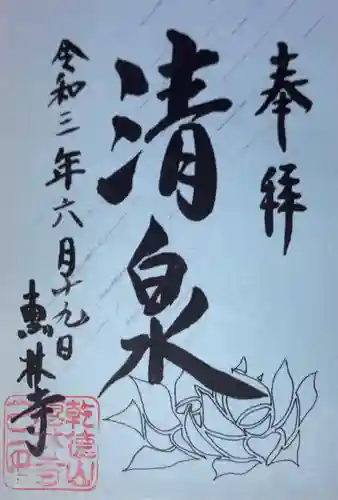 奉拝
清泉
令和三年六月十九日
恵林寺
乾徳山